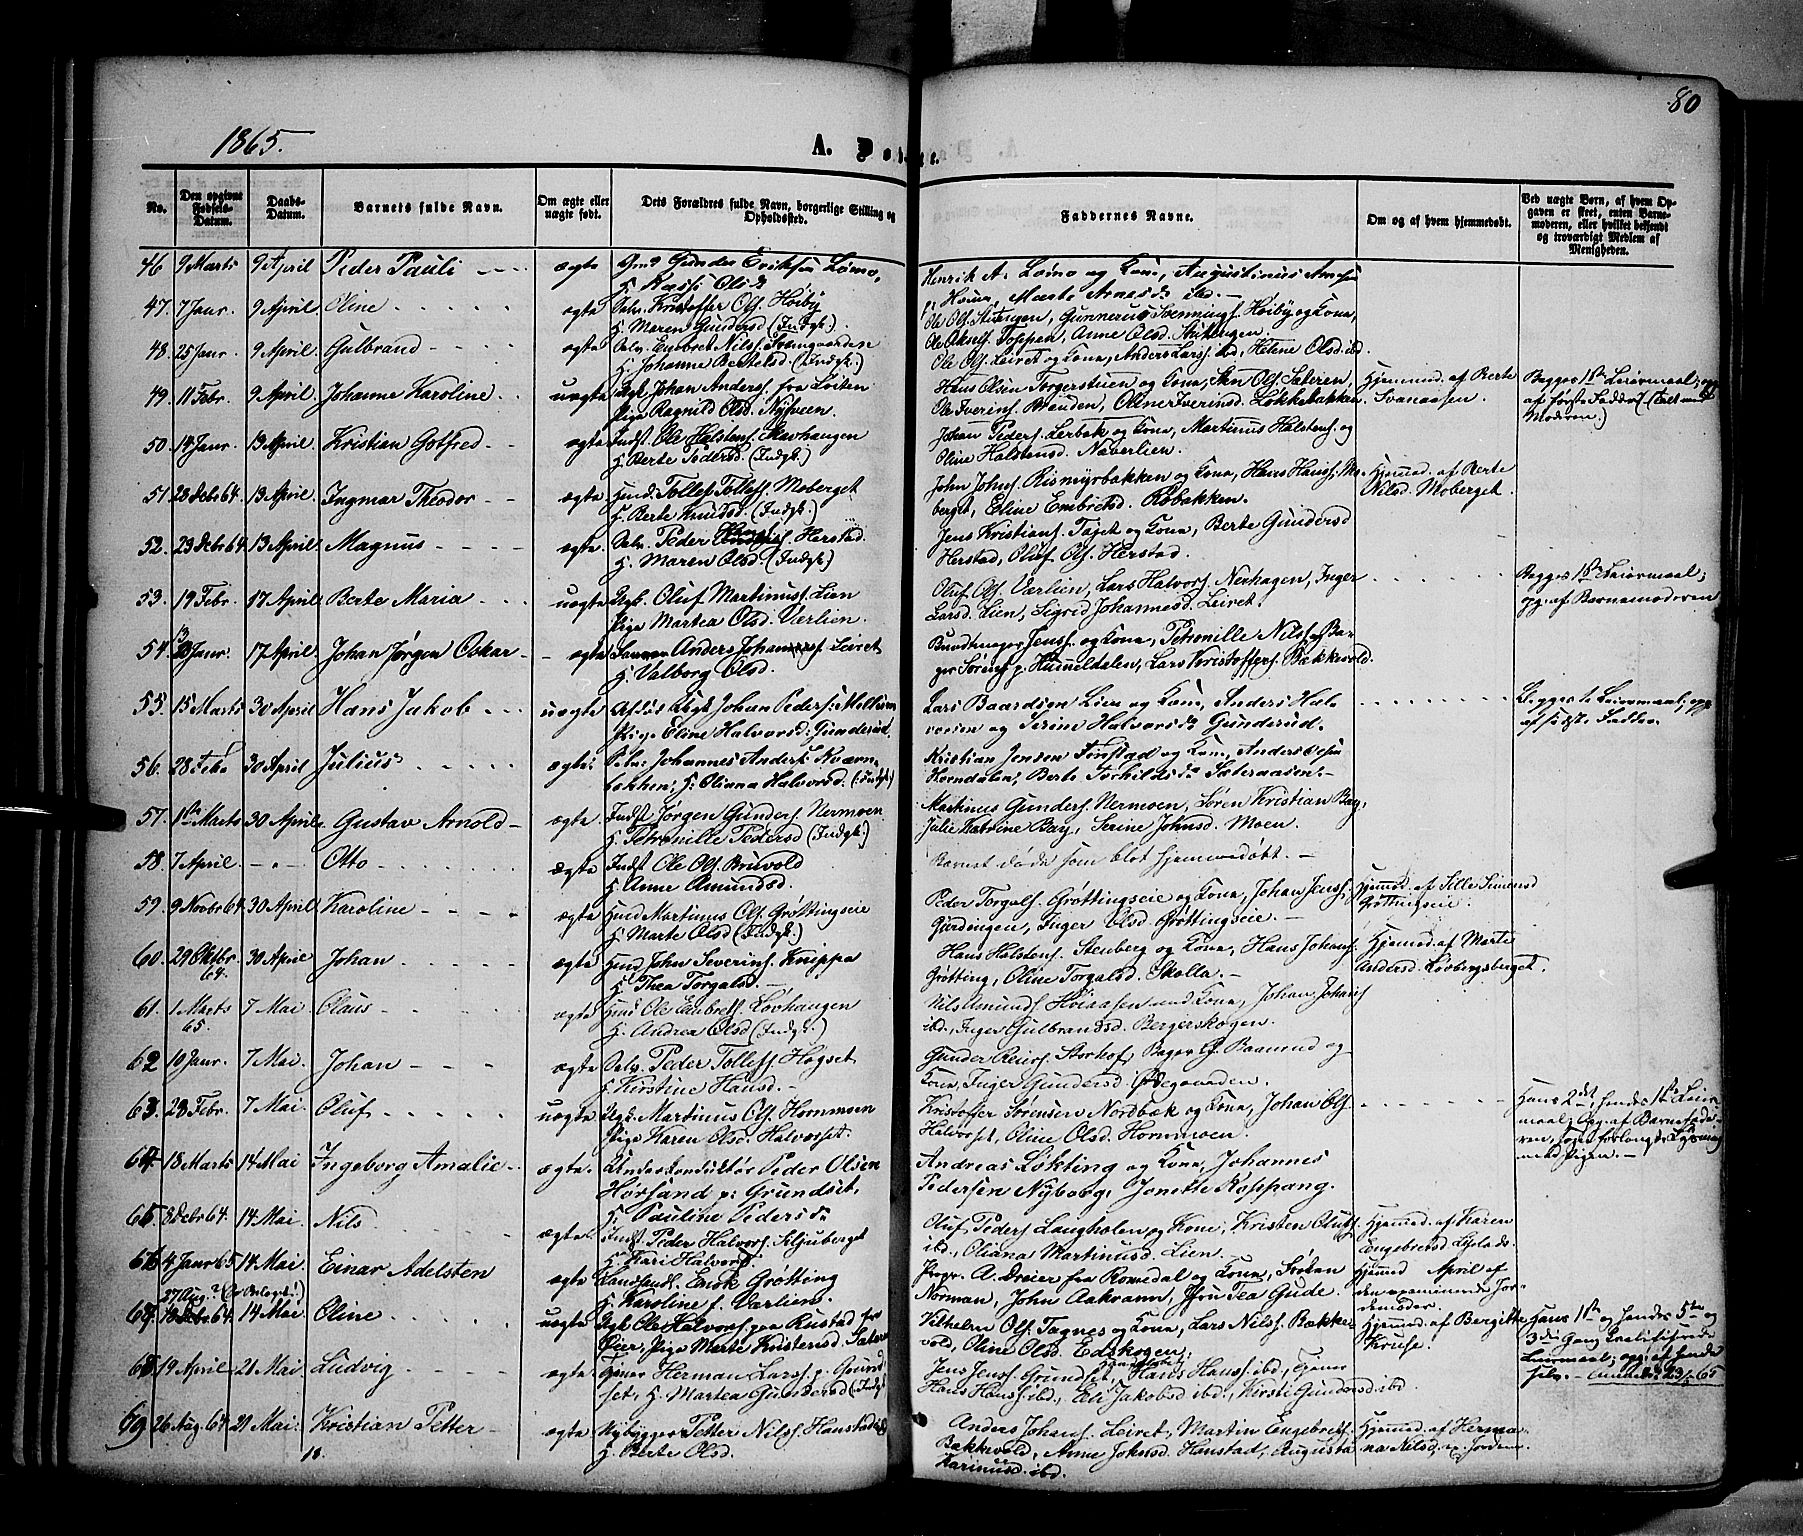 80
1865.
A. Døbte.
No.
Den opgivne Fødsels-Datum.
Daabs-Datum.
Barnets fulde Navn.
Om ægte eller uægte født.
Dets Forældres fulde Navn, borgerlige Stilling og Opholdssted.
Faddernes Navne.
Om og af hvem hjemmedøbt.
Ved uægte Børn, af hvem Opgaven er skeet, enten Barnemoderen, eller hvilket bekjendt og troværdigt Medlem af Menigheden.
46 9 Marts 9 April Peder Pauli ægte Gmd Gunder Eriksen Lømo,
H. Kassi Olsd
Henrik A. Lømo og Kone, Augustinus Arnesen
Marte Arnesd ibd.
47. 7 Janr. 9 April Oline ægte Selv. Kristoffer Ols. Høiby
H. Maren Gundersd (Indgk.)
Ole Ols. Stutengen, Gunnerus Svennings. Høiby og Kone,
Ole Aksels. Toppen, Anne Olsd. Stutengen.
48. 25 Janr 9 April Gulbrand ægte Selv. Embret Nils. Framgaarden
H. Johanne Bertelsd. (Indgk.)
Ole Ols. Leiret og Kone, Anders Lars. ibd, Helene Olsd. ibd
49. 11 Febr. 9 April Johanne Karoline uægte Ugk. Johan Anders. fra Løiten
Pige Ragnild Olsd. Nysveen
Hans Olsen Torgerstuen og Kone, Ole Ols. Sæteren,
Ole Iverens. Brænden, Oline Iverinsd. Løkkebakken
Hjemmed. af Berte
Svenaasen.
Begges 1ste Leiermaal; og
af første Fadder
Moderen.)
50. 14 Janr. 13 April Kristian Gotfred ægte Indst. Ole Halstens. Skavhaugen
H. Berte Pedersd. (Indgk.)
Johan Peders. Lerbak og Kone, Martinus Halstens. og
Oline Halstensd. Næverlien.
51. 28 Debr 64. 13 April Ingmar Theodor ægte Husd. Tollef Tollefs. Moberget
H. Berte Knudsd. (Indgk.)
John Johns. Rismyrbakken og Kone, Hans Hans. Mo-
berget, Eline Embretsd. Røbakken.
Hjemmd. af Berte
Nilsd. Moberget
52. 23 Debr 64. 13 April Magnus ægte Selv. Peder Herstad
H. Maren Olsd. (Indgk.)
Jens Kristians. Taget og Kone, Berte Gundersd
Herstad, Oluf Ols. Herstad.
53. 19 Febr. 17 April Berte Maria uægte Ugk. Oluf Martinus. Lien
Pige Martea Olsd. Værlien.
Oluf Ols. Værlien, Lars Halvors. Nerhagen, Inger
Larsd. Lien, Sigrid Johannesd. Leiret.
Begges 1ste Leiermaal;
opg. af Barnemoderen
54. Janr. 17 April Johan Jørgen Oskar ægte Anders Johannes. Leiret
H. Valborg Olsd.
Bundtmager Jens. og Kone, Petronille Nils. Ba-
ger Sørens. p. Hummeldalen, Lars Kristoffers. Bækkevold.
55. 15 Marts 30 April Hans Jakob uægte Ugk Johan Peders. Mellem
Pige Eline Halvorsd. Gunderud.
Lars Baardsen Lien og Kone, Anders Hal-
vorsen og Serine Halvorsd. Gunderud.
Begges 1 Leiermaal; opg.
af sidste Fadder.
56. 28 Febr 30 April Julius ægte Selv. Johannes Anders. Kværn-
løkken; H. Oliana Halvorsd. (Indgk.)
Kristian Jensen Finstad og Kone, Anders Olsen
Horndalen; Berte Torkildsd. Sæteraasen.
57. 1ste Marts 30 April Gustav Arnold ægte Indst Jørgen Gunders. Nermoen
H. Petronille Pedersd (Indgk.)
Martinus Gunders. Nermoen, Søren Kristian Bay,
Julie Katrine Bay, Serine Johnsd. Moen.
58. 7 April Otto ægte Indst Ole Ols. Bruvold
H. Anne Amundsd.
Barnet døde som blot hjemmedøbt.
59. 9 Novbr 64 30 April Karoline ægte Husd Martinus Ols. Grøttingseie
H. Marte Olsd (Indgk.)
Peder Torgals. Grøttingseie og Kone, Johan Jens.
Gjerdingen, Inger Olsd Grøttingseie.
Hjemmd. af Sille Simensd
Grøttingseie.
60. 29 Oktbr. 64. 30 April Johan ægte Husd John Severins. Knippa
H. Thea Torgalsd.
Hans Halstens. Stenberg og Kone, Hans Johans.
Grøtting, Oline Torgalsd. Skolla.
Hjemmed. af Marte
Andersd. Løvbergsberget.
61. 1 Marts 65 7 Mai Olaus ægte Husd Ole Embrets. Løvhaugen
H. Andrea Olsd (Indgk.)
Nils Amunds. Høiaasen med Kone, Johan Johans
ibd., Inger Gulbrandsd. Bergerskogen.
62 10 Janr. 7 Mai Johan ægte Selv. Peder Tollefs. Høgset
H. Kirstine Hansd.
Gunder Reiers. Storhof, Bager G. Baanrud og
Kone, Inger Gundersd Ødegaarden.
63. 28 Febr. 7 Mai Oluf uægte Ugk. Martinus Ols. Hommoen
Pige Karen Olsd. Halvorset.
Kristoffer Sørensen Nordbæk og Kone, Johan Ols.
Halvorset, Oline Olsd. Hommoen.
Hans 2det, hendes 1ste Leier-
maal; opg. af Barnefade-
ren,
med Pigen.
64. 18 Marts 14 Mai Ingeborg Amalie ægte Underkonduktør Peder Olsen
Hørsand p. Grundset,
H. Pauline Pedersd.
Andreas Løkting og Kone, Johannes
Pedersen Nyborg, Jonette Koppang.
65 8 Debr 64. 14 Mai Nils ægte Indst Peder Halvors. Skjuberget
H. Kari Halvorsd.
Oluf Peders. Langholen og Kone, Kristen Olufs.
ibd., Oliana Martinusd. Lien.
Hjemmed. af Karen
Engebretsd
66 4 Janr 65 14 Mai Einar Adelsten ægte Landhandl. Enok Grøtting
H. Karoline f. Værlien.
Propr. A. Dreier fra Romedal og Kone, Frøken
Norman, John Aakrann, Frøken Tea Gude.
Hjemmed April af
den examinerede Jor-
demoder.
67. 14 Mai Oline uægte Ugk Ole Halvors. paa Rustad
Øier, Pige Marte Kristensd. Sæter
Vilhelm Ols. Tagnes og Kone, Lars Nils. Bække-
vold, Oline Olsd. Edskogen.
Hjemmed. af Bergitte
Kruse.
Hans 1ste og hendes 5te og
3die Gang
Leiermaal; opg. af hende
selv.
68 19 April 21 Mai Ludvig ægte Tjener Herman Lars. p. Grund-
set, H. Martea Gundersd (Indgk.)
Jens Jens. Grundset, Hans Hans. ibd, Tjener
Hans Hans. ibd, Eli Jakobsd ibd, Kirsti Gundersd. ibd
69 26 Aug. 64 21 Mai Kristian Petter ægte Nybygger Petter Nils. Hanstad
H. Berte Olsd.
Anders Johans. Leiret, Martin Engebrets.
Bækkevold, Anne Johnsd. Hanstad, Augusta
Karinusd. ibd.
Hjemmed. af Herma-
na Nilsd, ex. Jordem.
18.